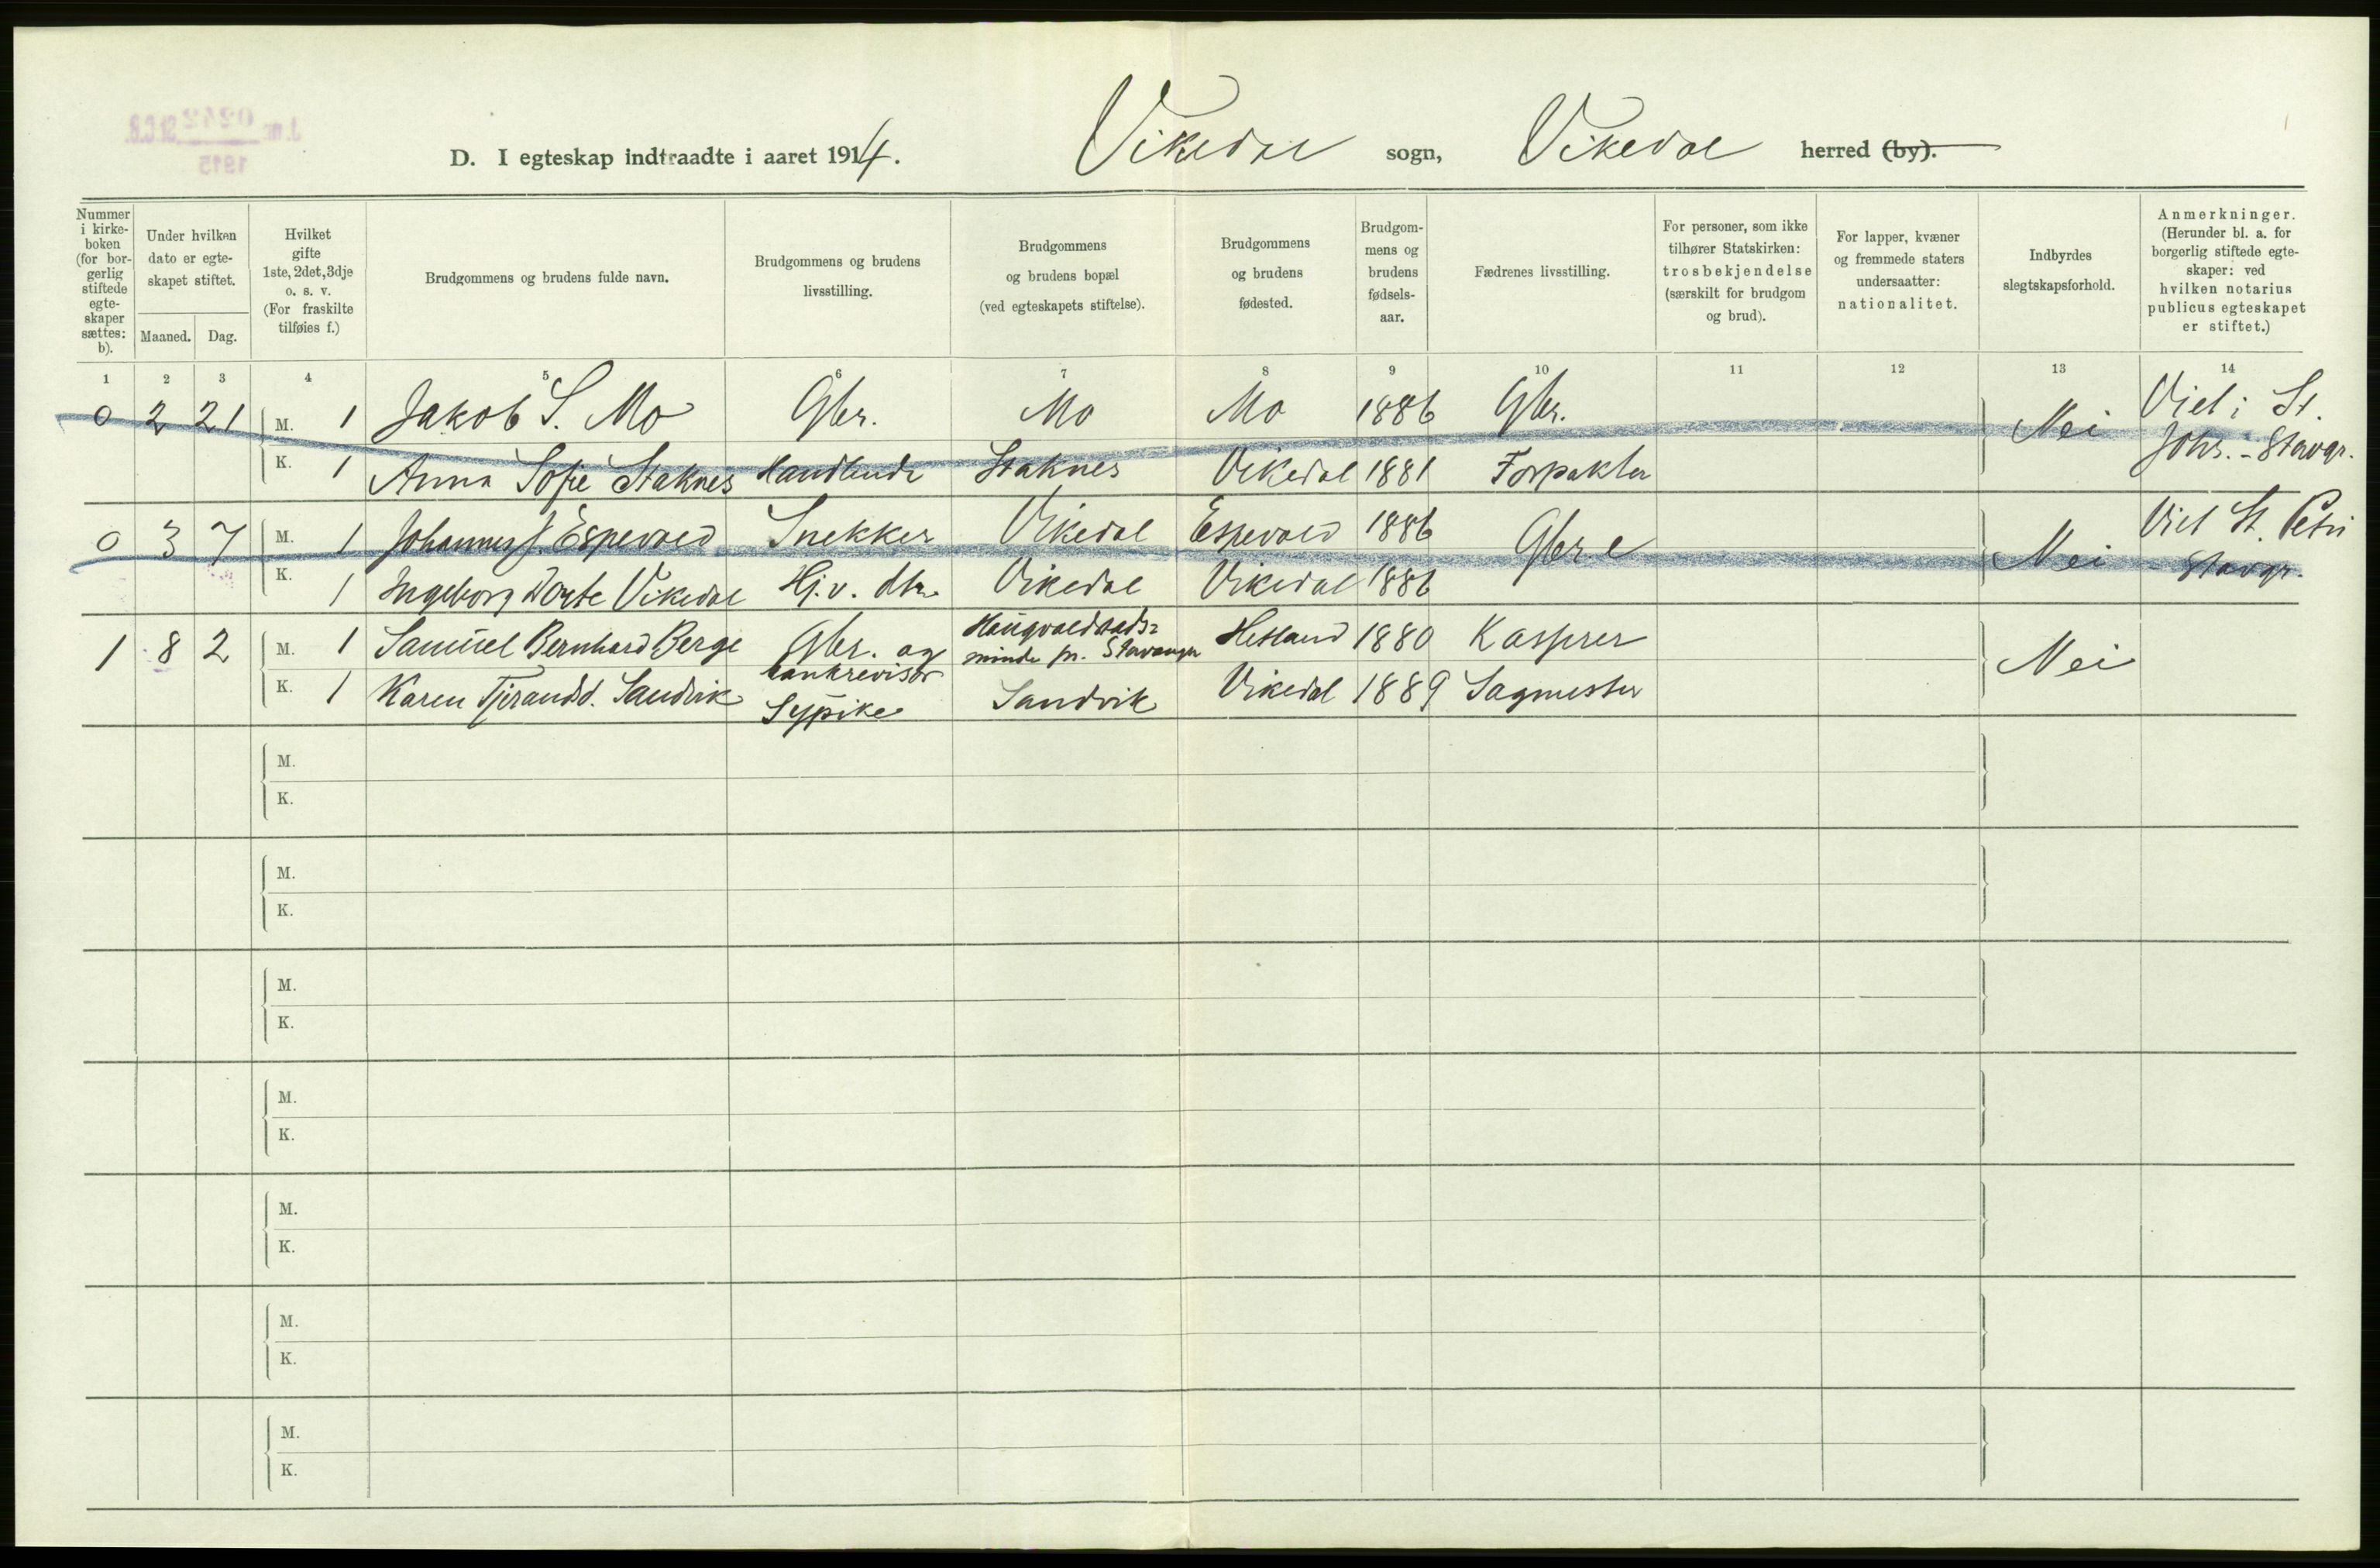 D. I egteskap indtraadte i aaret 1914. Vikedal sogn, Vikedal herred (by).
J. nr. 0242 St.C.B.
1915
Nummer i kirkeboken (for borgerlig stiftede egteskaper sættes: b).
Under hvilken dato er egteskapet stiftet.
Maaned. Dag.
Hvilket gifte 1ste, 2det, 3dje o. s. v. (For fraskilte tilføies f.)
Brudgommens og brudens fulde navn.
Brudgommens og brudens livsstilling.
Brudgommens og brudens bopæl (ved egteskapets stiftelse).
Brudgommens og brudens fødested.
Brudgommens og brudens fødselsaar.
Fædrenes livsstilling.
For personer, som ikke tilhører Statskirken: trosbekjendelse (særskilt for brudgom og brud).
For lapper, kvæner og fremmede staters undersaatter: nationalitet.
Indbyrdes slegtskapsforhold.
Anmerkninger. (Herunder bl. a. for borgerlig stiftede egteskaper: ved hvilken notarius publicus egteskapet er stiftet.)
1 2 3 4 5 6 7 8 9 10 11 12 13 14
0 2 21 M. 1 Jakob S. Mo Gbr. Mo Mo 1886 Gbr. Nei Viet i St.
Johs. - Stavgr.
K. 1 Anna Sofie Staknes Handlende Staknes Vikedal 1881 Forpakter
0 3 7 M. 1 Johannes J. Espevold Snekker Vikedal Espevold 1886 Gbr.e Nei Viet St. Petri
- Stavgr.
K. 1 Ingeborg Dorte Vikedal Hj.v. dtr. Vikedal Vikedal 1886
1 8 2 M. 1 Samuel Bernhard Berge Gbr. og bankrevisor Haugvaldstadsminde pr. Stavanger Hetland 1880 Kasserer Nei
K. 1 Karen Tjerandsd. Sandvik Sypike Sandvik Vikedal 1889 Sagmester
M.
K.
M.
K.
M.
K.
M.
K.
M.
K.
M.
K.
M.
K.